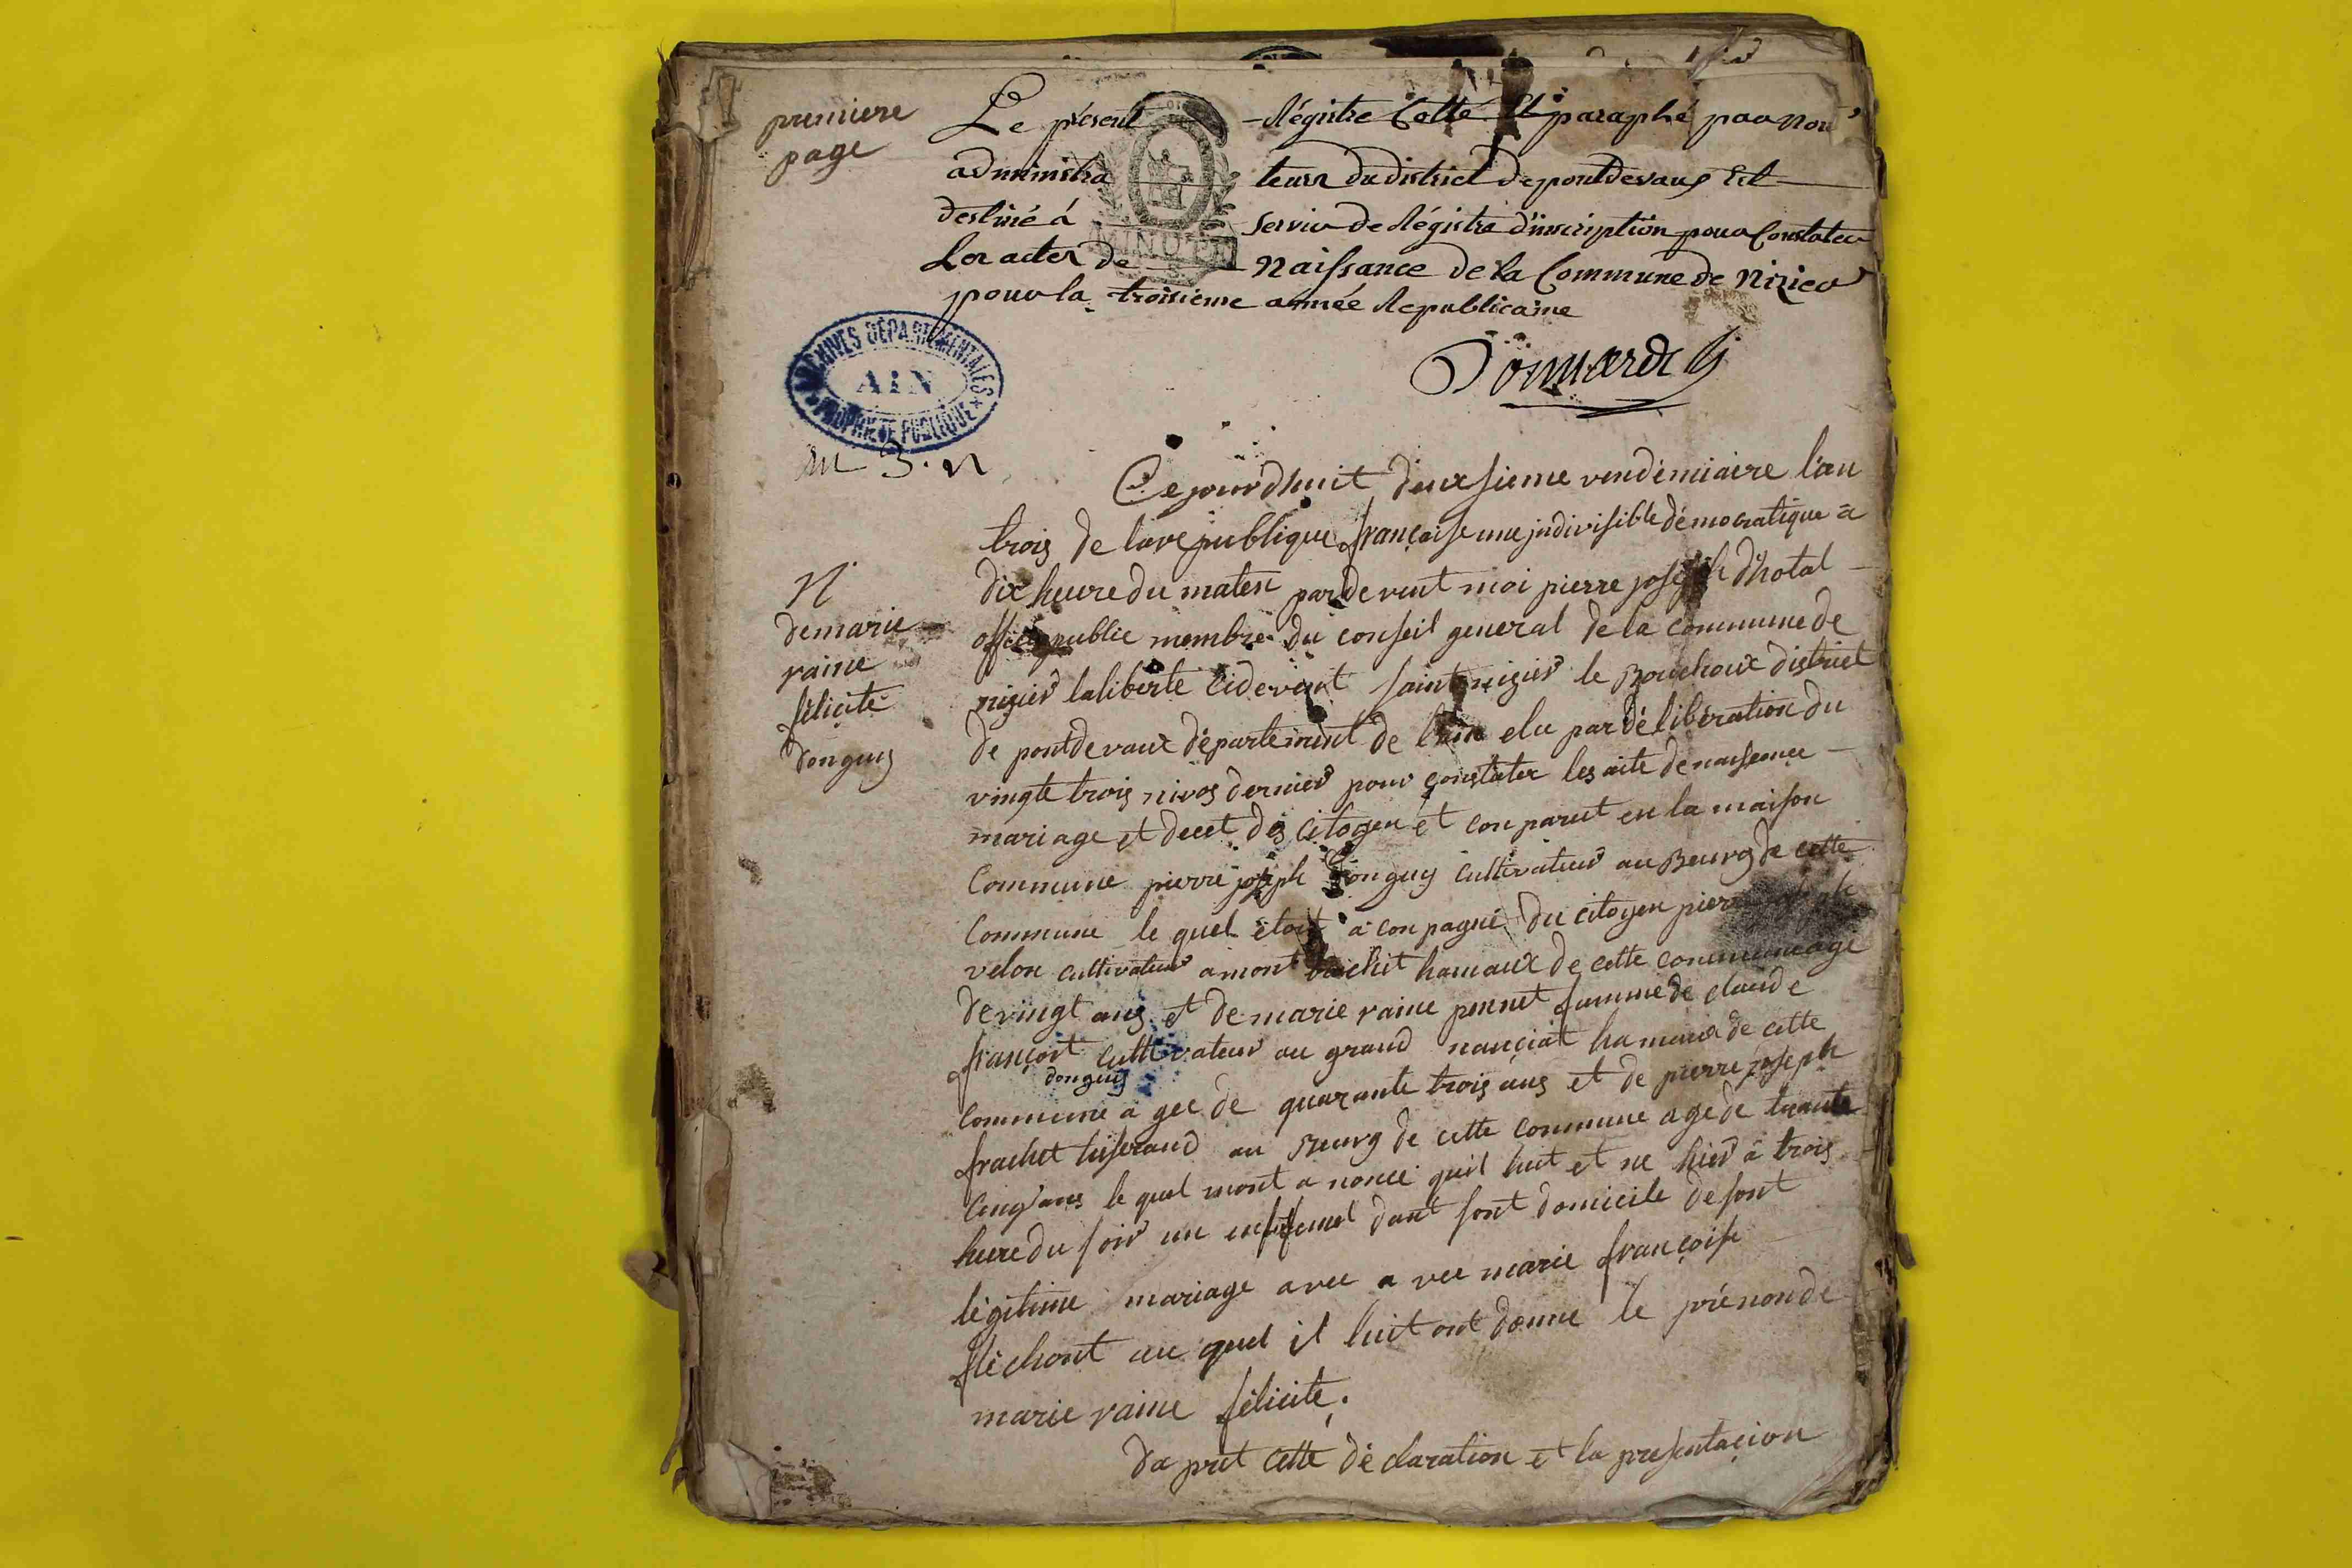 premiere
page
Le présent Régistre Cotté Et paraphé par nous
administrateurs du district de pontdevaux Est
destiné á servir de Régistre d'inscription pour Constater
Les actes de Naissance de la Commune de Nizier
pour la troisieme année Republicaine
MINUTE
ARCHIVES DÉPARTEMENTALES
AIN
PROPRIÉTÉ PUBLIQUE
an 3. n
Cejourdhuit deuxsieme vendémiaire l'an
trois de lare publique françaisse une jndivisible démocratique a
dix heure du maten par de vent moi pierre joseph d'hotal
officie public membre du conseil general de la commune de
nizier laliberte cidevent saint nizier le Bouchoux district
de pontdevaux département de l'ain elu par délibération du
vingte trois nivos dernier pour constater les aite denaissence
mariage et decet des citoyen et con parut en la maison
Commune pierre joseph Donguy cultivateur au Bourg de cette
Commune le quel etoit a con pagné du citoyen pierre joseph
velon cultivateur a mont hamaux de cette commune age
de vingt ans et de marie raine pennet famme de claude
françont cultivateur au grand nanciat hamaux de cette
donguy
commune a gee de quarante trois ans et de pierre joseph
frachet tisserand au Bourg de cette commune age de trante
cinq ans le quel mont a noncé quil luit et ne hier a trois
heure du soir un enf femel dant sont domicile de sont
légitime mariage avec a vec marie françoisse
fléchont au quel il luit ont donne le prénon de
marie raine félicité.
da prêt cette déclaration et la presentaçion
N
de marie
raine
félicité
donguy